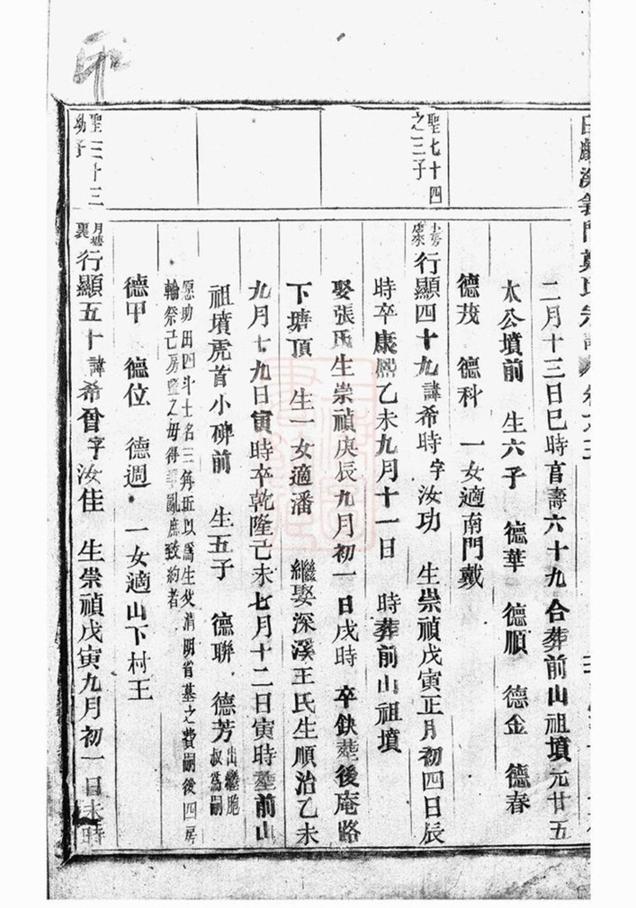 印
白麟溪義門鄭氏宗譜
二月十三日巳時享壽六十九合葬前山祖墳元廿五
太公墳前 生六子 德華 德順 德金 德春
德茂 德科 一女適南門戴
聖七十四
之三子
行顯四十九諱希時字汝功 生崇禎戊寅正月初四日辰
時卒康熙乙未九月十一日 時葬前山祖墳
娶張氏生崇禎庚辰九月初一日戌時 卒缺塟後庵路
下塘頂 生一女適潘 繼娶深溪王氏生順治乙未
九月十九日寅時卒乾隆己未七月十二日寅時塟前山
祖墳虎首小碑前 生五子 德聯 德芳出繼胞
叔爲嗣
愿助田四斗土名三
以爲生
清明省墓之費嗣後四房
輪祭己房
之毋得
亂庶致約者
德甲 德位 德週 一女適山下村王
聖三十三
幼子
月塘
裏
行顯五十諱希曾字汝佳 生崇禎戊寅九月初一日未時